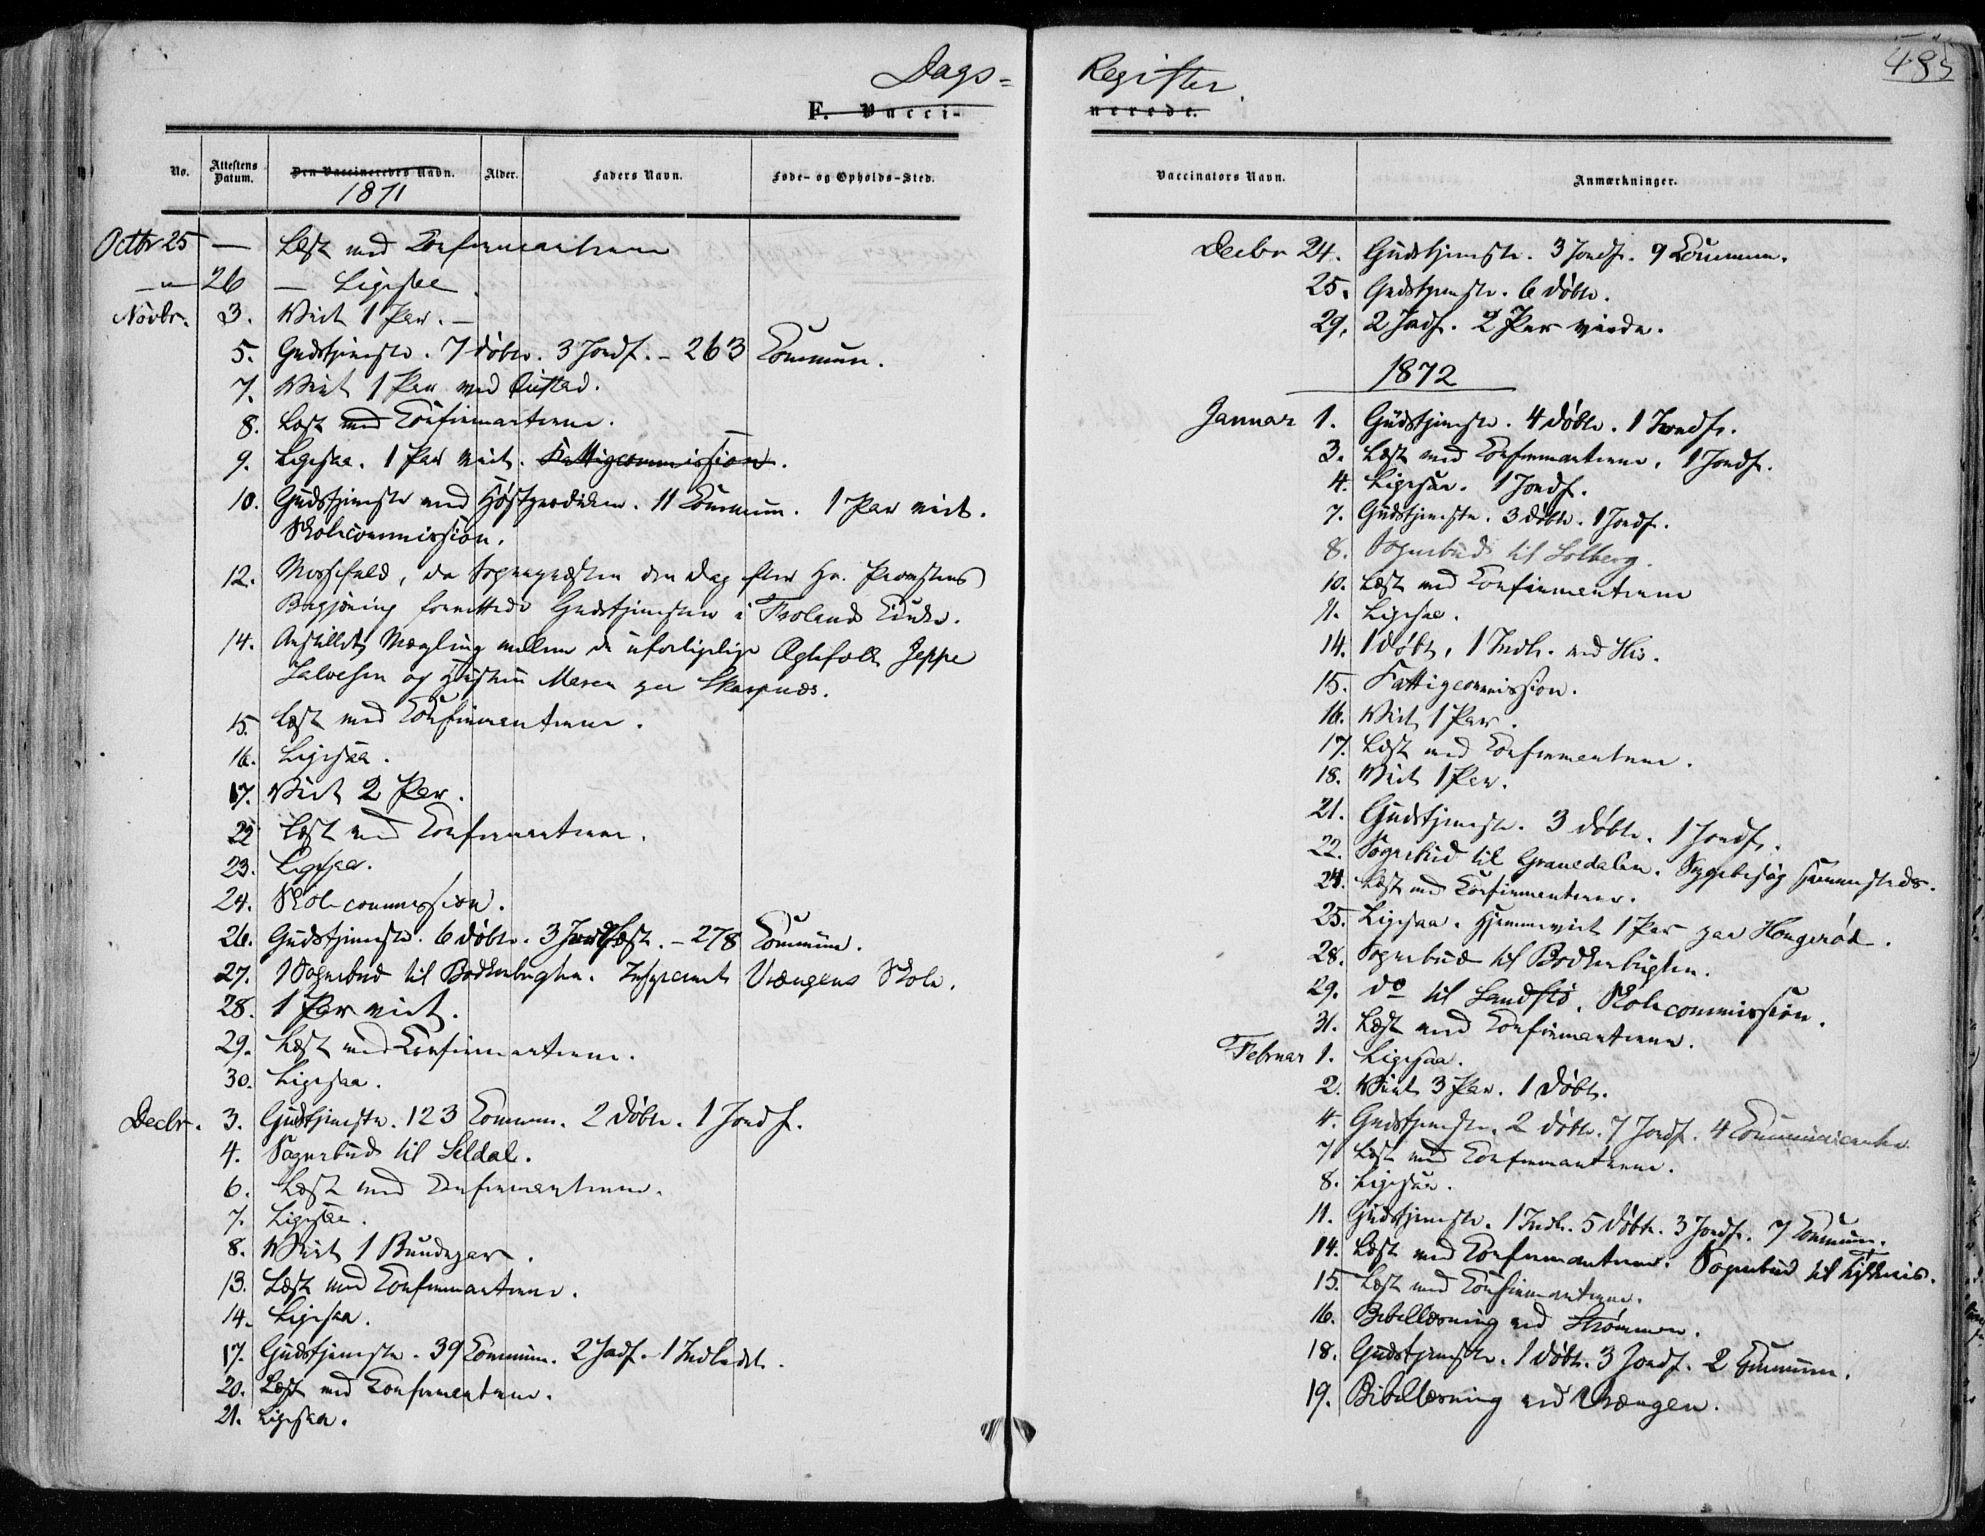 485
Dags-Register.
F. Vaccinerede.
No. Attestens Datum. Den Vaccineredes Navn. Alder. Faders Navn. Føde- og Opholds-Sted. Vaccinators Navn. Anmærkninger.
1871
Octbr 25 — Læst med Confirmanterne
—"— 26 — Ligesaa
Novbr. 3. Viet 1 Par. —
5. Gudstjeneste. 7 døbte. 3 Jordf. – 263 Commun.
7. Viet 1 Par ved
8. Læst med Confirmanterne.
9. Ligesaa. 1 Par viet. Fattigcommission.
10. Gudstjeneste med Høstprædiken. 11 Commun. 1 Par viet.
Skolecommission.
12. Messefald, da Sognepræsten den Dag efter Hr. Provstens
forrettede Gudstjenesten i Froland Kirke.
14. Anstillet Mægling mellem de uforligelige Ægtefolk Jeppe
Salvesen og Hustru Maren paa Skarpnæs.
15. Læst med Confirmanterne.
16. Ligesaa.
17. Viet 2 Par.
22 Læst med Confirmanterne.
23. Ligesaa.
24. Skolecommission.
26. Gudstjeneste. 6 døbte. 3 Jordfæst. – 278 Commun.
27. 1 Sognebud til Bodkerbugten. Inspiceret Vrængens Skole.
28. 1 Par viet.
29. Læst med Confirmanterne.
30. Ligesaa.
Decbr. 3. Gudstjeneste. 123 Commun. 2 døbte. 1 Jordf.
4. Sognebud til Seldal.
6. Læst med Confirmanterne.
7. Ligesaa.
8. Viet 1 Brudepar.
13. Læst med Confirmanterne.
14. Ligesaa.
17. Gudstjeneste. 39 Commun. 2 Jordf. 1 Indledt.
20. Læst med Confirmanterne.
21. Ligesaa.
Decbr 24. Gudstjeneste. 3 Jordf. 9 Commun.
25. Gudstjeneste. 6 døbte.
29. 2 Jordf. 2 Par viede.
1872
Januar 1. Gudstjeneste. 4 døbte. 1 Jordf.
3. Læst med Confirmanterne. 1 Jordf.
4. Ligesaa. 1 Jordf.
7. Gudstjeneste. 3 døbte. 1 Jordf.
8. Sognebud til Solberg.
10. Læst med Confirmanterne
11. Ligesaa.
14. 1 døbt, 1 Indl. ved His.
15. Fattigcommission.
16. Viet 1 Par.
17. Læst med Confirmanterne.
18. Viet 1 Par.
21. Gudstjeneste. 3 døbte. 1 Jordf.
22. Sognebud til Granedalen. Sygebesøg sammesteds.
24. Læst med Confirmanterne.
25. Ligesaa. Hjemmeviet 1 Par paa Hougerød.
28. Sognebud til Bodkerbugten.
29. do til Sandstø. Skolecommission.
31. Læst med Confirmanterne.
Februar 1. Ligesaa.
2. Viet 3 Par. 1 døbt.
4. Gudstjeneste. 2 døbte. 7 Jordf. 4 Communicanter
7 Læst med Confirmanterne.
8. Ligesaa.
11. Gudstjeneste. 1 Indl. 5 døbte. 3 Jordf. 7 Commun.
14. Læst med Confirmanterne. Sognebud til
15. Læst med Confirmanterne.
16. Bibellæsning ved Strømmen.
18. Gudstjeneste. 1 døbt. 3 Jordf. 2 Commun.
19. Bibellæsning ved Vrængen.